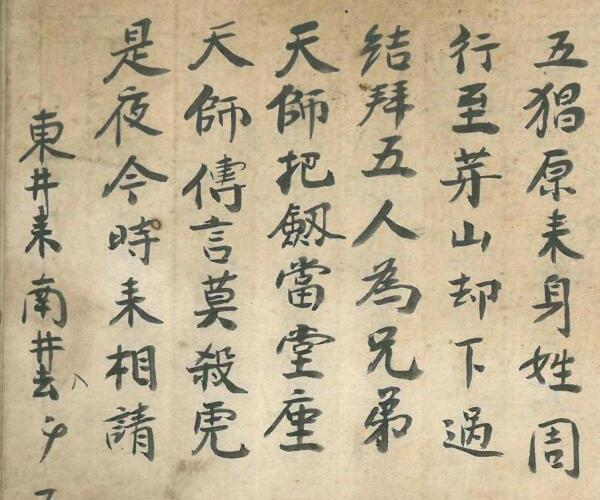 五猖原来身姓周
行至茅山却下過
結拜五人為兄弟
天師把劔當堂座
天師傳言莫殺虎
是夜今時来相請
東井来南井去